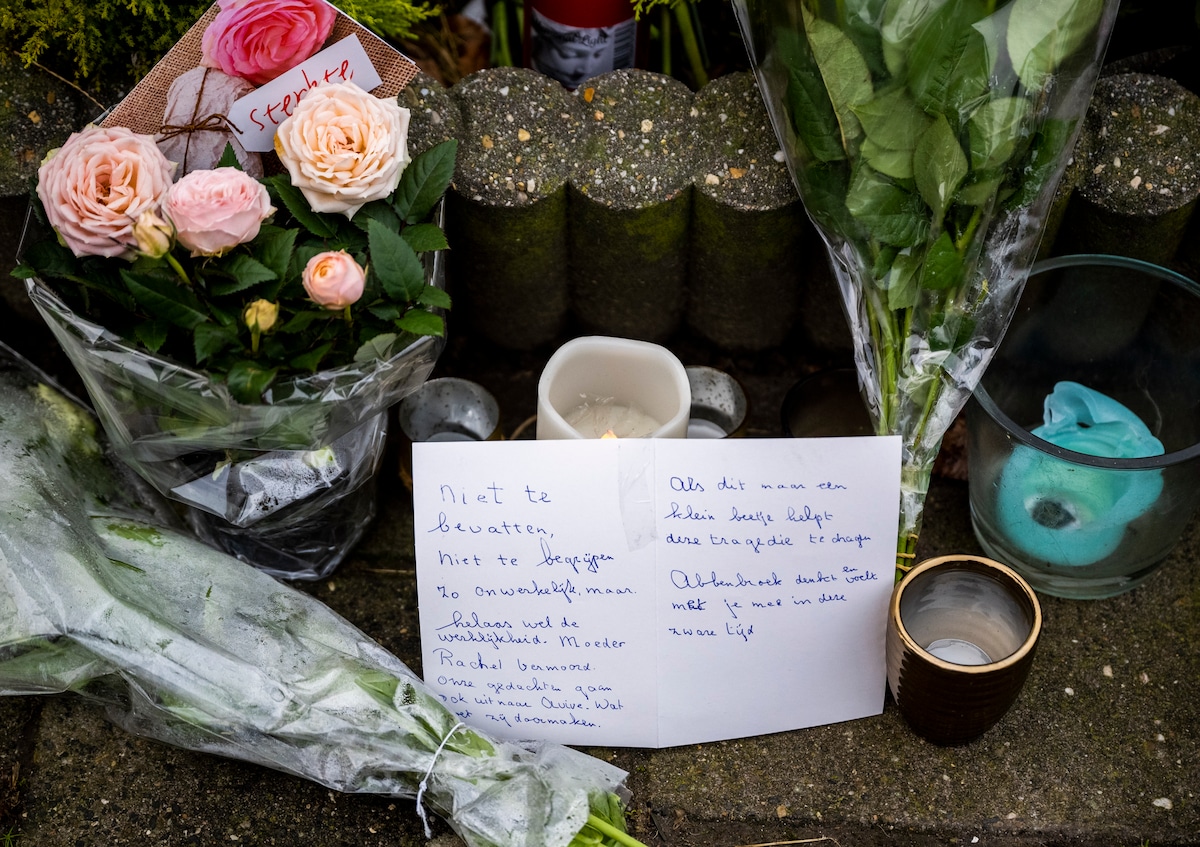 Sterkte,
Niet te
bevatten,
Niet te begrijpen
Zo onwerkelijk, maar.
helaas wel de
werklijkheid. Moeder
Rachel vermoord.
Onze gedachten gaan
ook uit naar Avive. Wat
moet zij doormaken.
Als dit maar een
klein beetje helpt
deze tragedie te dragen
Abbenbroek denkt en voelt
met je mee in deze
zware tijd